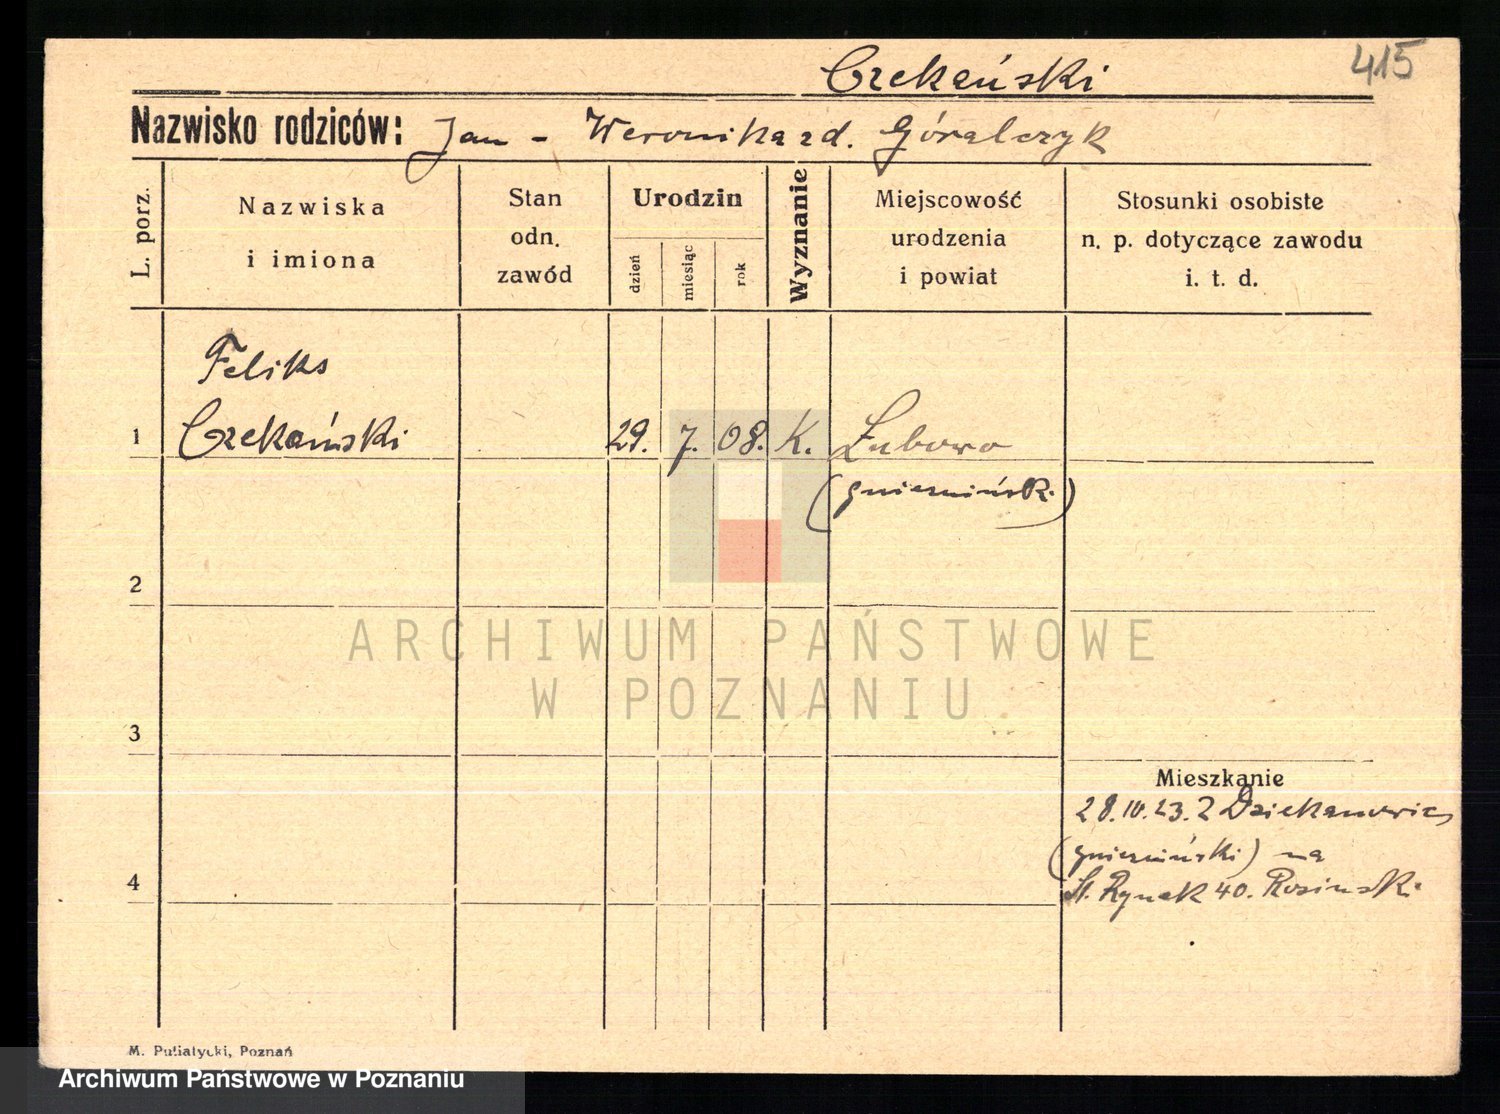 Czekański
415
Nazwisko rodziców: Jan - Weronika zd. Góralczyk
L. porz.
Nazwiska
i imiona
Stan
odn.
zawód
Urodzin
dzień
miesiąc
rok
Wyznanie
Miejscowość
urodzenia
i powiat
Stosunki osobiste
n. p. dotyczące zawodu
i. t. d.
Feliks
1 Czekański 29. 7. 08. K. Łubowo
(gnieźnińsk.)
2
ARCHIWUM PAŃSTWOWE
W POZNANIU
3
Mieszkanie
28.10.23. z Dziekanowic
(gnieźniński) na
4
St. Rynek 40. Rosinski
M. Putiatycki, Poznań
Archiwum Państwowe w Poznaniu